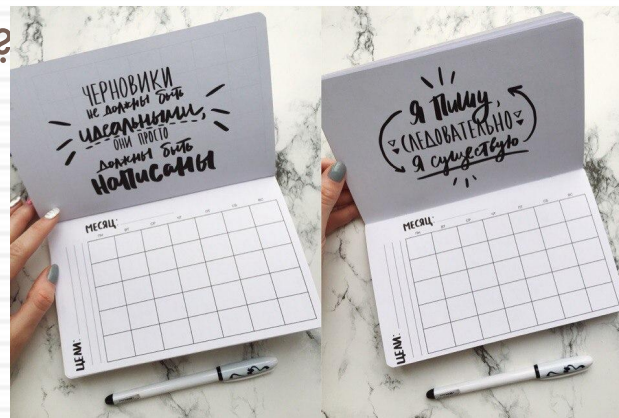 ЧЕРНОВИКИ
НЕ ДОЛЖНЫ БЫТЬ
ИДЕАЛЬНЫМИ,
ОНИ ПРОСТО
ДОЛЖНЫ БЫТЬ
НАПИСАНЫ
МЕСЯЦ:
ЦЕЛИ:
Я ПИШУ,
СЛЕДОВАТЕЛЬНО
Я СУЩЕСТВУЮ
МЕСЯЦ:
ЦЕЛИ: